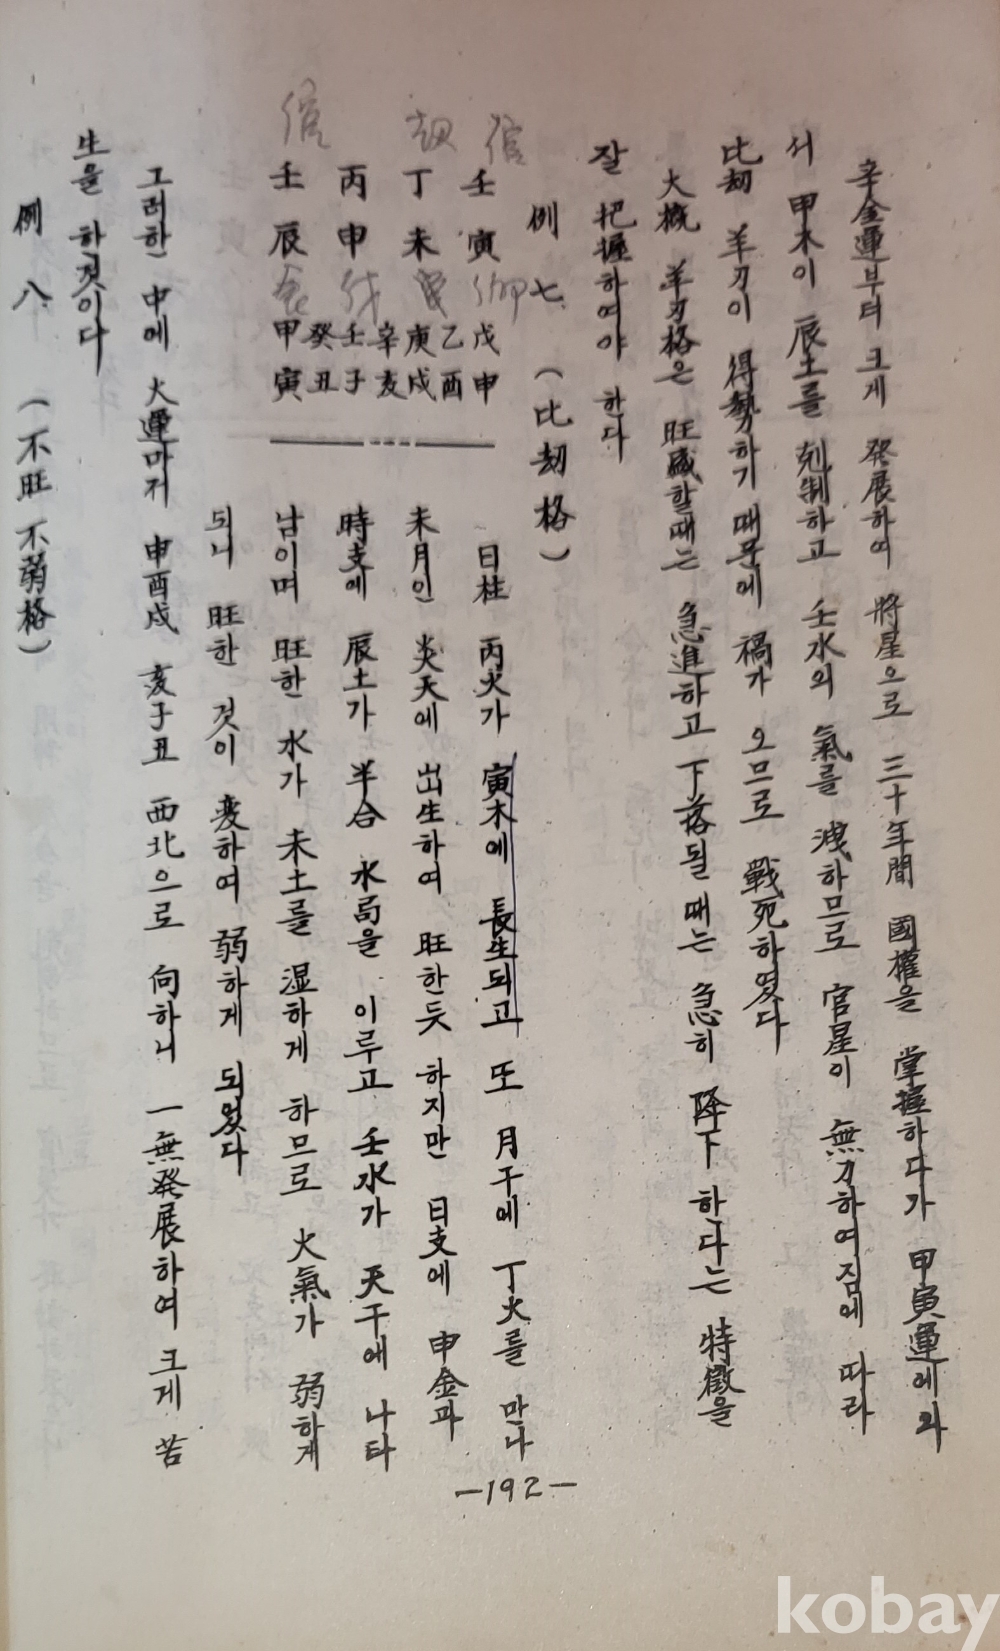 辛金運부터 크게 発展하여 將星으로 三十年間 國權을 掌握하다가 甲寅運에 와
서 甲木이 辰土를 剋制하고 壬水의 氣를 洩하므로 官星이 無力하여짐에 따라
比劫 羊刃이 得勢하기 때문에 禍가 오므로 戰死하였다
大概 羊刃格은 旺盛할때는 急進하고 下落될 때는 急히 降下 한다는 特徵을
잘 把握하여야 한다
例 七 (比劫格)
壬寅
丁未
丙申
壬辰
戊申
乙酉
庚戌
辛亥
壬子
癸丑
甲寅
日柱 丙火가 寅木에 長生되고 또 月干에 丁火를 만나
未月인 炎天에 出生하여 旺한듯 하지만 日支에 申金과
時支에 辰土가 半合 水局을 이루고 壬水가 天干에 나타
남이며 旺한 水가 未土를 湿하게 하므로 火氣가 弱하게
되니 旺한 것이 変하여 弱하게 되었다
그러한 中에 大運마저 申酉戌 亥子丑 西北으로 向하니 一無発展하여 크게 苦
生을 하것이다
例 八 (不旺 不弱格)
-192-
kobay